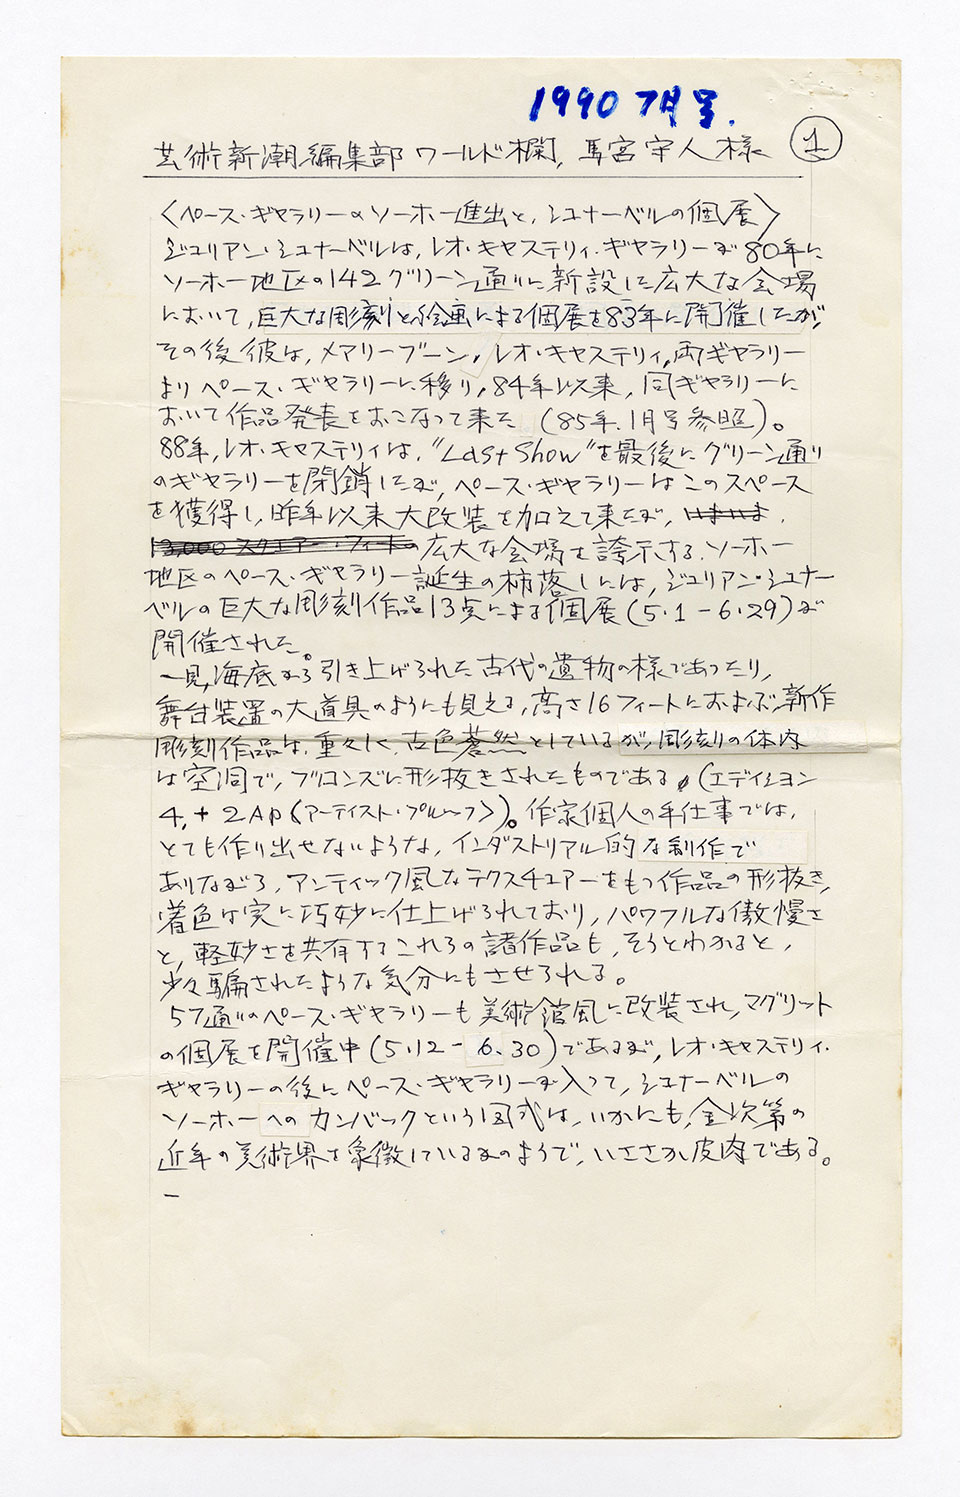 1990 7月号.
芸術新潮編集部 ワールド欄, 馬宮守人様 ①
〈ペース・ギャラリーのソーホー進出と, シュナーベルの個展〉
ジュリアン・シュナーベルは, レオ・キャステリィ・ギャラリーが80年に
ソーホー地区の142グリーン通りに新設した広大な会場
において, 巨大な彫刻と絵画による個展を83年に開催したが,
その後彼は, メアリーブーン, レオ・キャステリィ, 両ギャラリー
よりペース・ギャラリーに移り, 84年以来, 同ギャラリーに
おいて作品発表をおこなって来た (85年.1月号参照)。
88年, レオ・キャステリィは, "Last Show"を最後にグリーン通り
のギャラリーを閉鎖したが, ペース・ギャラリーはこのスペース
を獲得し, 昨年以来大改装を加えて来たが,
13,000 スクエアー・フィートの 広大な会場を誇示する, ソーホー
地区のペース・ギャラリー誕生の柿落しには, ジュリアン・シュナー
ベルの巨大な彫刻作品13点による個展(5.1-6.29)が
開催された。
一見, 海底から引き上げられた古代の遺物の様であったり,
舞台装置の大道具のようにも見える, 高さ16フィートにおよぶ, 新作
彫刻作品は, 重々しく, 古色蒼然としているが, 彫刻の体内
は空洞で, ブロンズに形抜きされたものである (エディション
4, + 2AP〈アーティスト・プルーフ〉)。作家個人の手仕事では,
とても作り出せないような, インダストリアル的な制作で
ありながら, アンティック風なテクスチュアーをもつ作品の形抜き,
着色は実に巧妙に仕上げられており, パワフルな傲慢さ
と, 軽妙さを共有するこれらの諸作品も, そうとわかると,
少々騙されたような気分にもさせられる。
57通りのペース・ギャラリーも美術館風に改装され, マグリット
の個展を開催中(5.12-6.30)であるが, レオ・キャステリィ・
ギャラリーの後にペース・ギャラリーが入って, シュナーベルの
ソーホーへのカンバックという図式は, いかにも, 金次第の
近年の美術界を象徴しているかのようで, いささか皮肉である。
ー